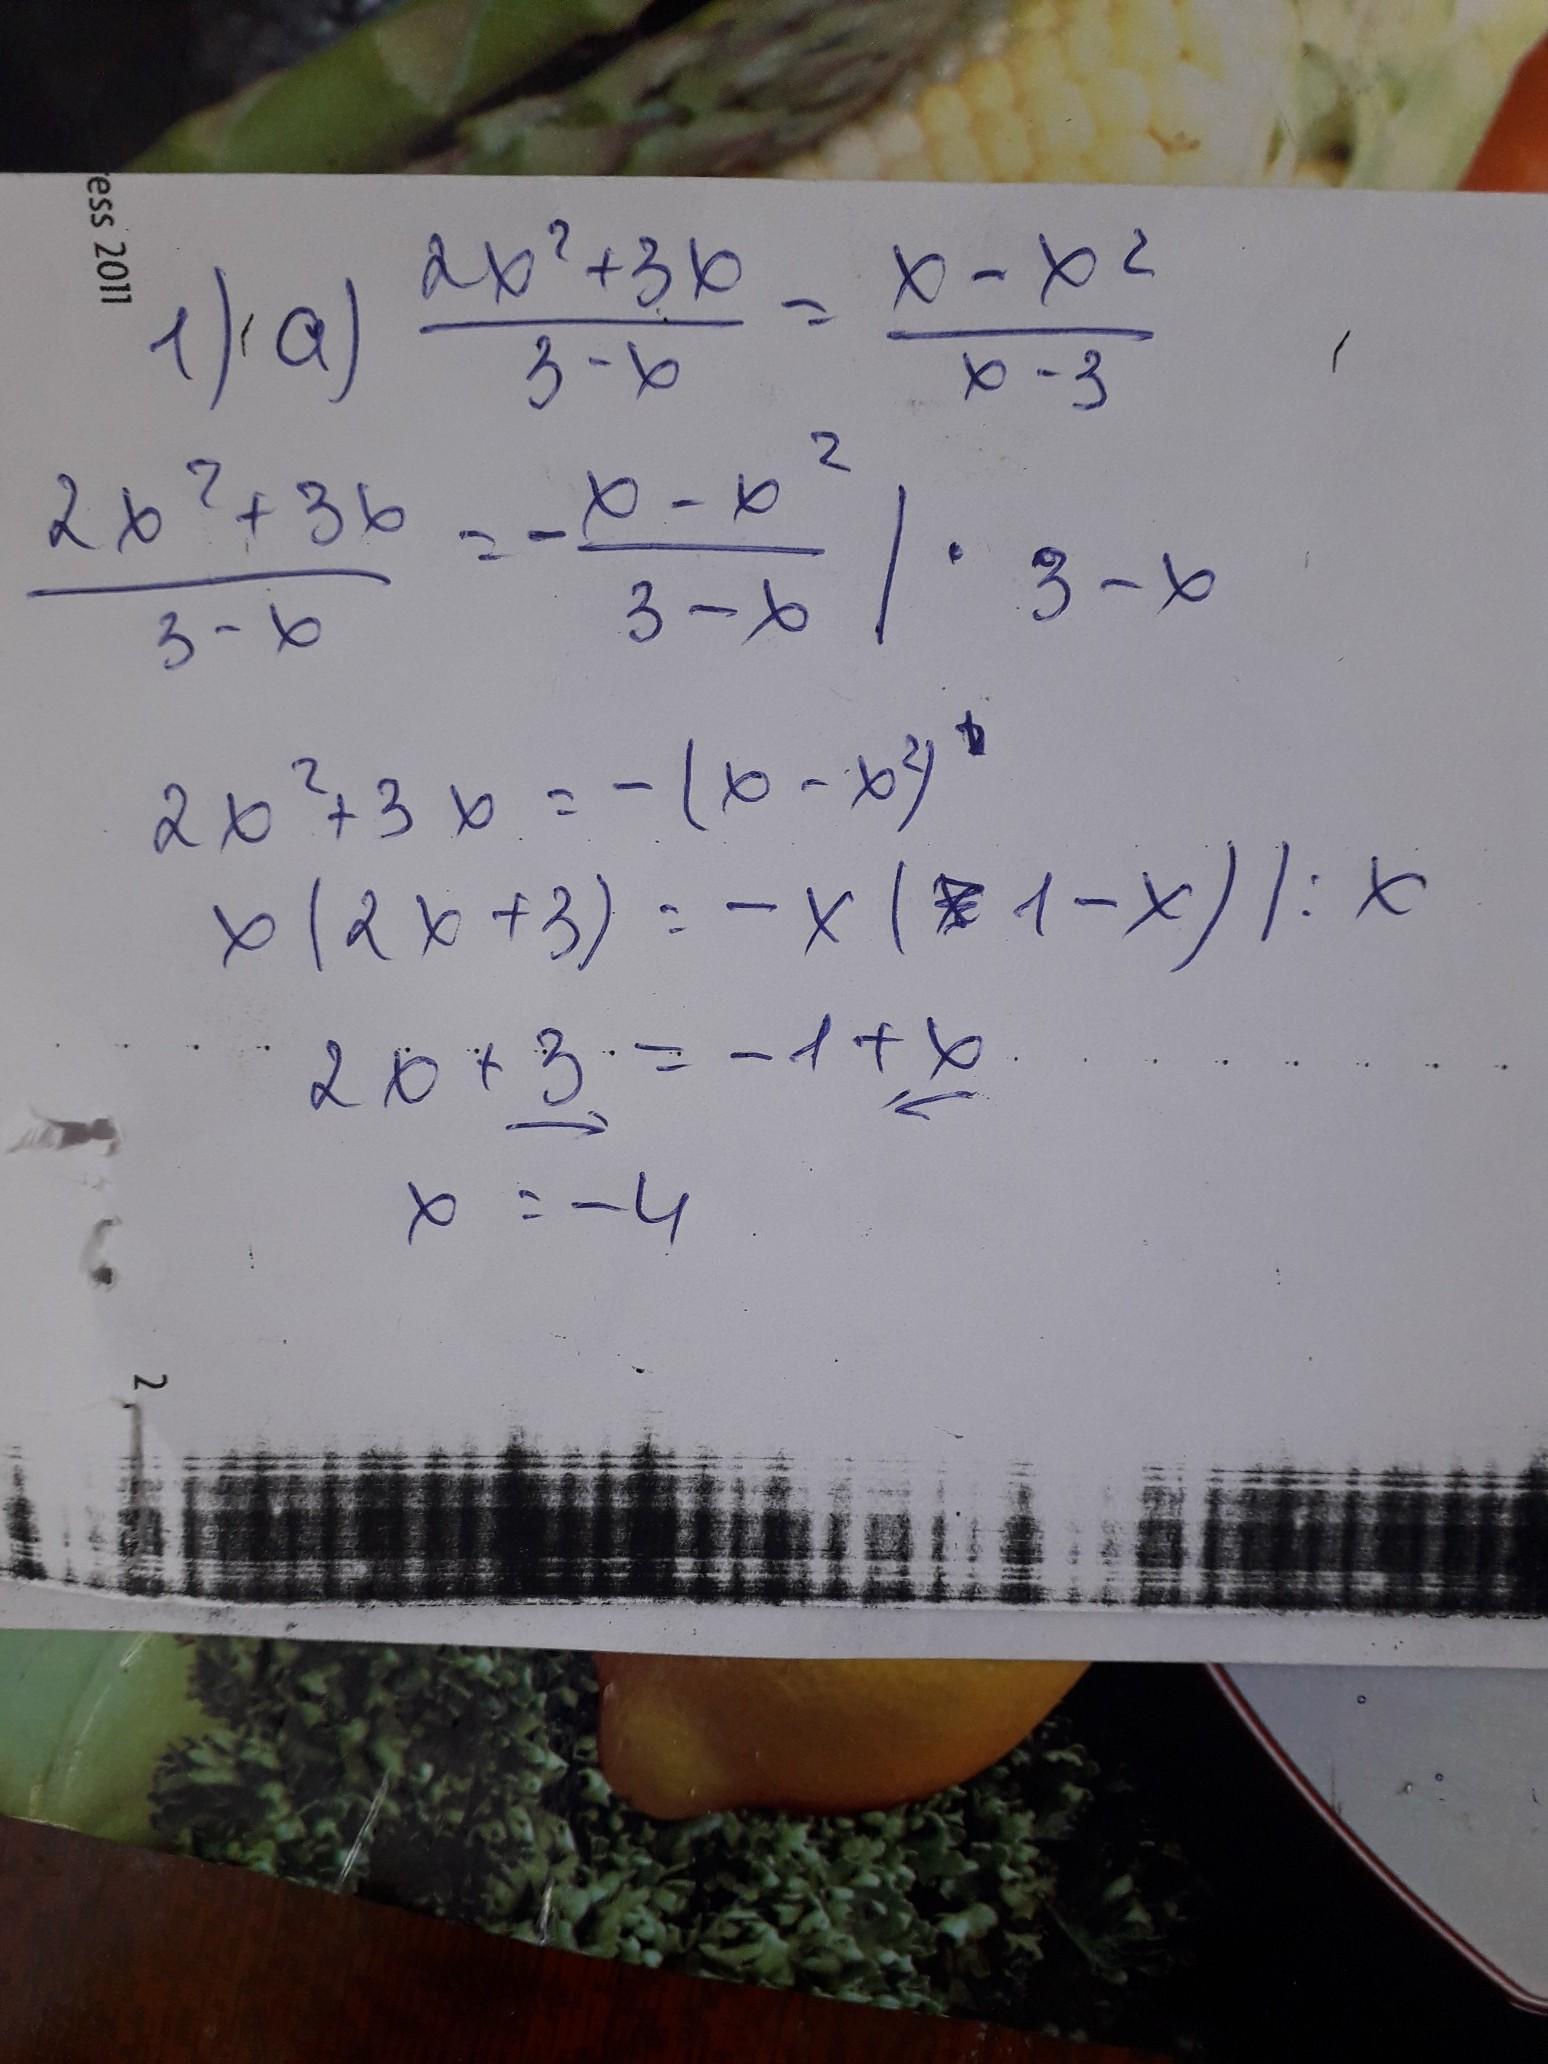 ress 2011
1) a) (2x²+3x)/(3-x) = (x-x²)/(x-3)
(2x²+3x)/(3-x) = -(x-x²)/(3-x) | · 3-x
2x²+3x = -(x-x²)
x(2x+3) = -x(1-x) |: x
2x+3 = -1+x
x = -4
2